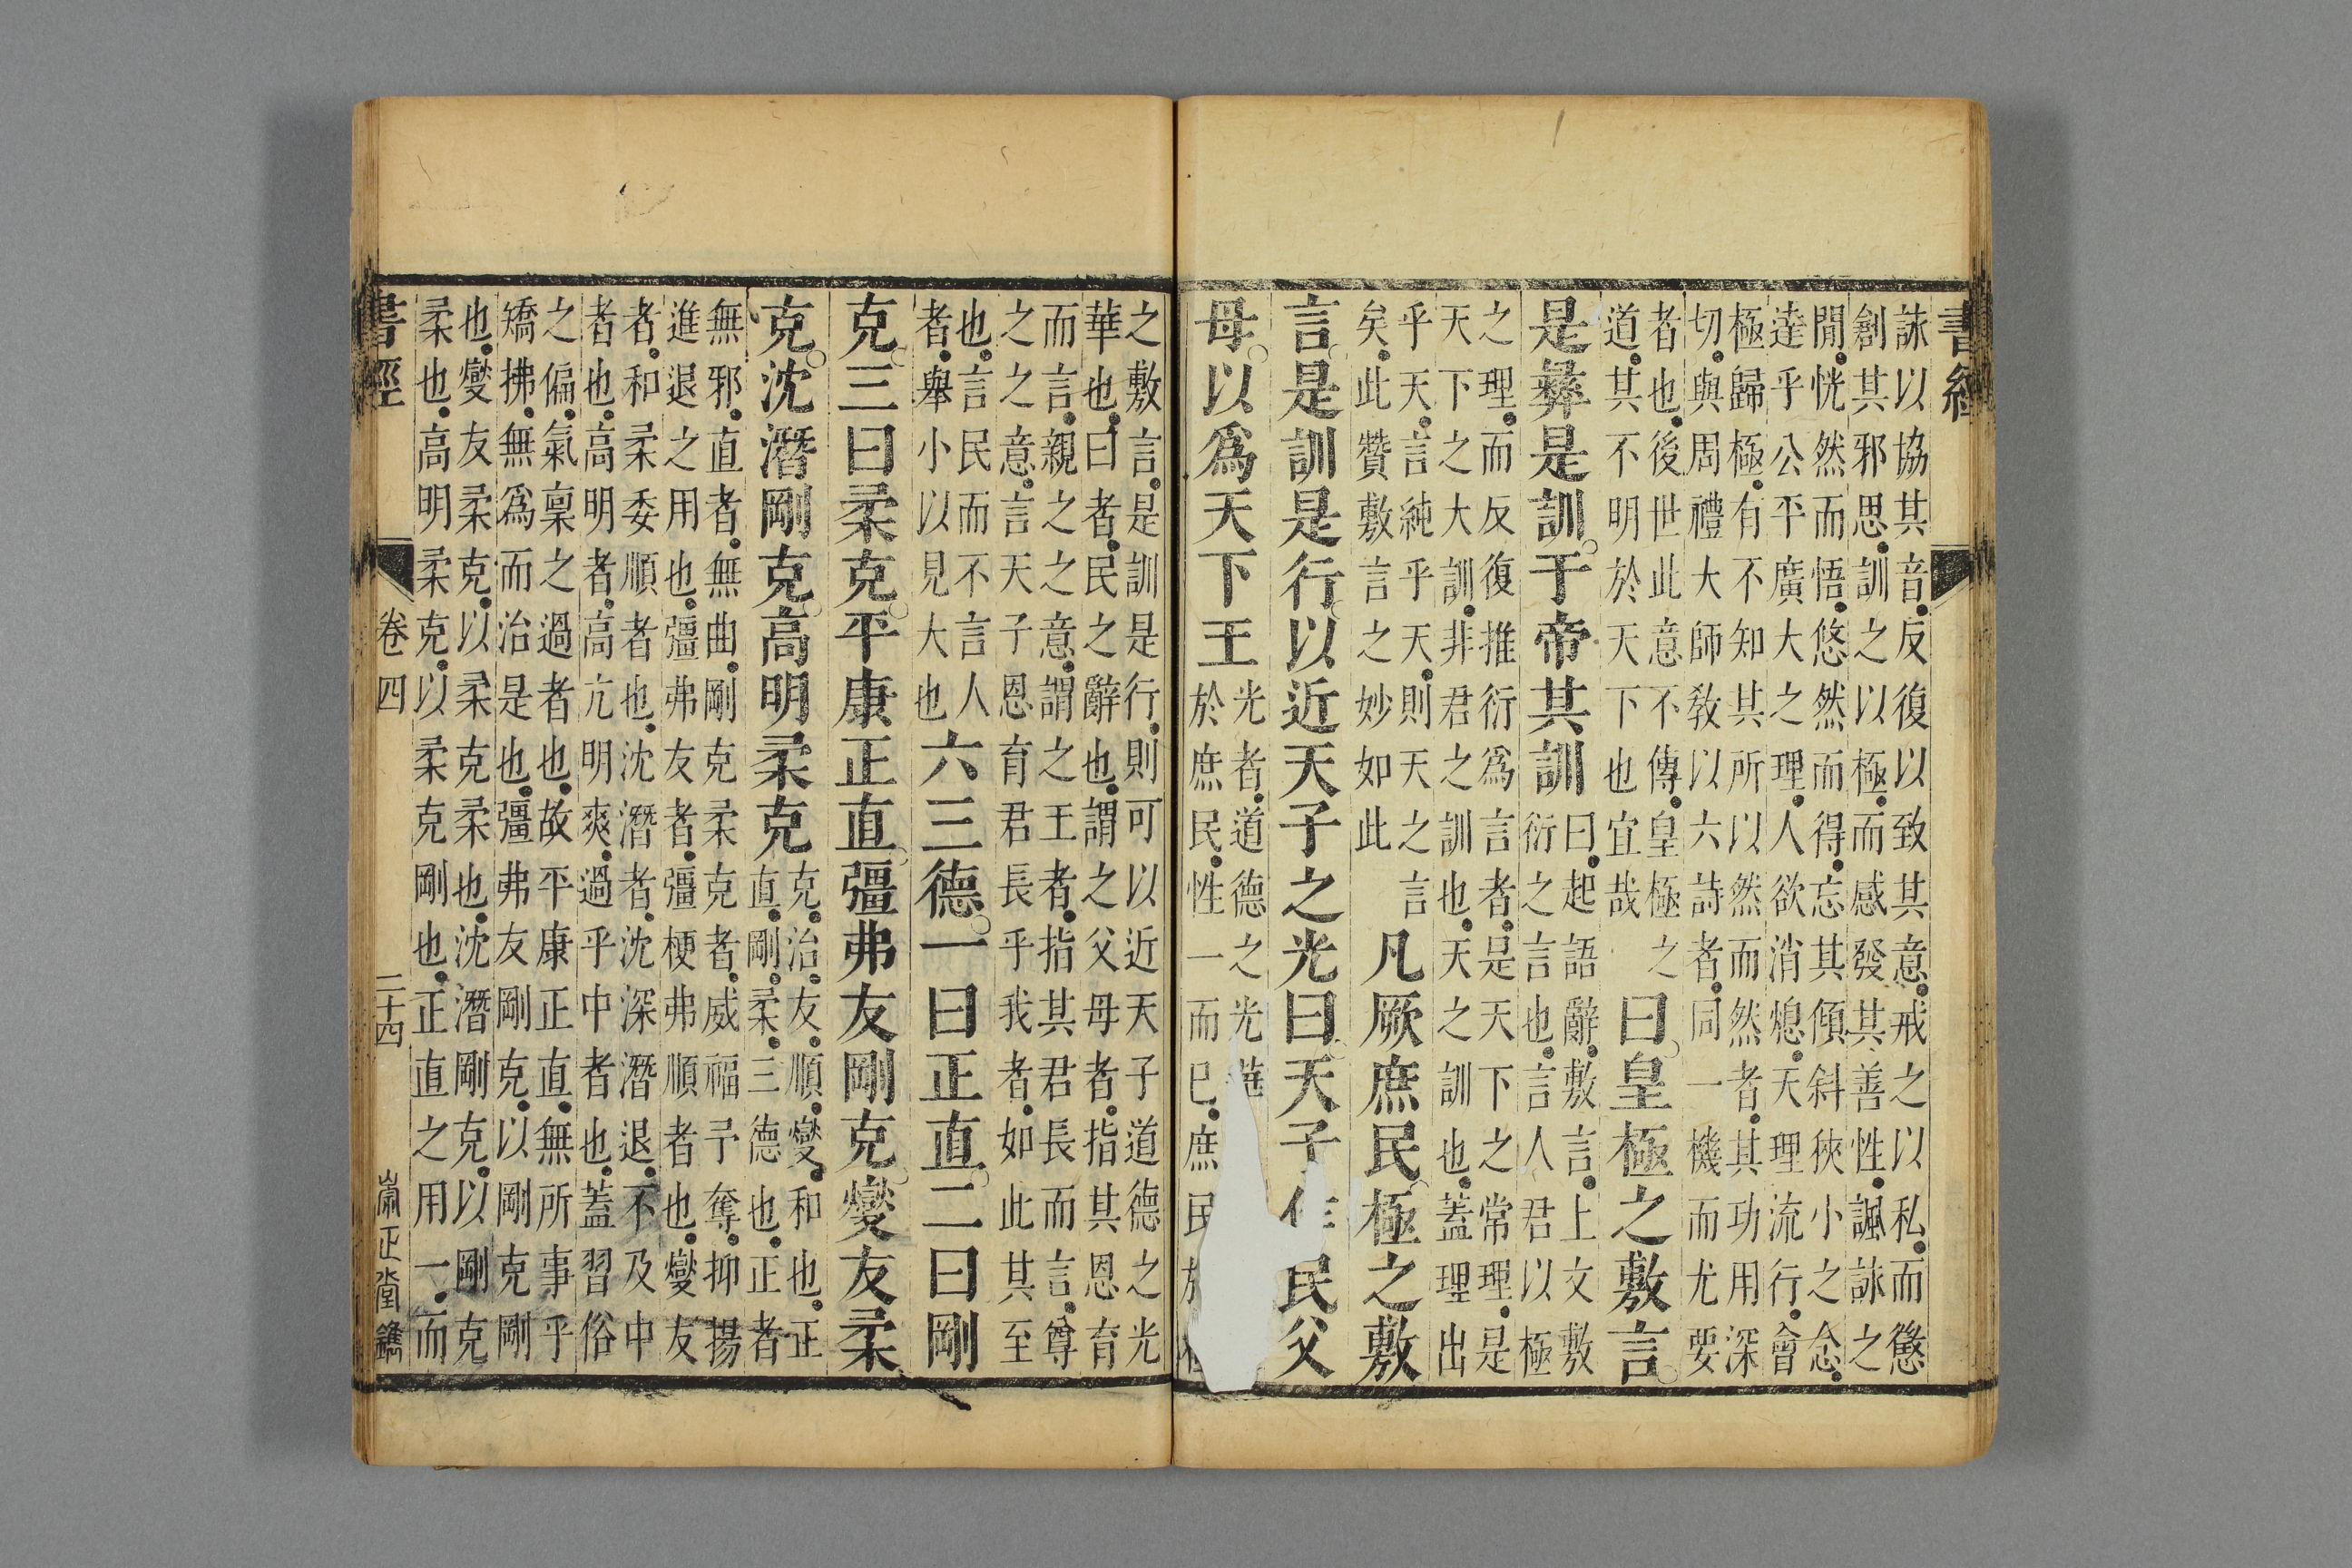 書經
詠以協其音。反復以致其意。戒之以私。而懲
創其邪思。訓之以極。而感發其善性。諷詠之
閒。恍然而悟。悠然而得。忘其傾斜狹小之念。
達乎公平廣大之理。人欲消熄。天理流行。會
極歸極。有不知其所以然而然者。其功用深
切。與周禮大師教以六詩者。同一機而尤要
者也。後世此意不傳。皇極之
道。其不明於天下也宜哉
曰。皇極之敷言。
是彝是訓。于帝其訓
曰。起語辭。敷言。上文敷
衍之言也。言人君以極
之理。而反復推衍爲言者。是天下之常理。是
天下之大訓。非君之訓也。天之訓也。蓋理出
乎天。言純乎天。則天之言
矣。此贊敷言之妙如此
凡厥庶民。極之敷
言。是訓是行。以近天子之光。曰。天子作民父
母。以爲天下王
光者。道德之光華
於庶民。性一而已。庶民
之敷言。是訓是行。則可以近天子道德之光
華也。曰者。民之辭也。謂之父母者。指其恩育
而言。親之之意。謂之王者。指其君長而言。尊
之之意。言天子恩育君長乎我者。如此其至
也。言民而不言人
者。舉小以見大也
六三德。一曰正直。二曰剛
克。三曰柔克。平康正直。彊弗友剛克。燮友柔
克。沈潛剛克。高明柔克
克。治。友。順。燮。和也。正
直。剛。柔。三德也。正者
無邪。直者。無曲。剛克柔克者。威福予奪。抑揚
進退之用也。彊弗友者。彊梗弗順者也。燮友
者。和柔委順者也。沈潛者。沈深潛退。不及中
者也。高明者。高亢明爽。過乎中者也。蓋習俗
之偏。氣稟之過者也。故平康正直。無所事乎
矯拂。無爲而治是也。彊弗友剛克。以剛克剛
也。燮友柔克。以柔克柔也。沈潛剛克。以剛克
柔也。高明柔克。以柔克剛也。正直之用一。而
書經
卷四
二十四
崇正堂鐫